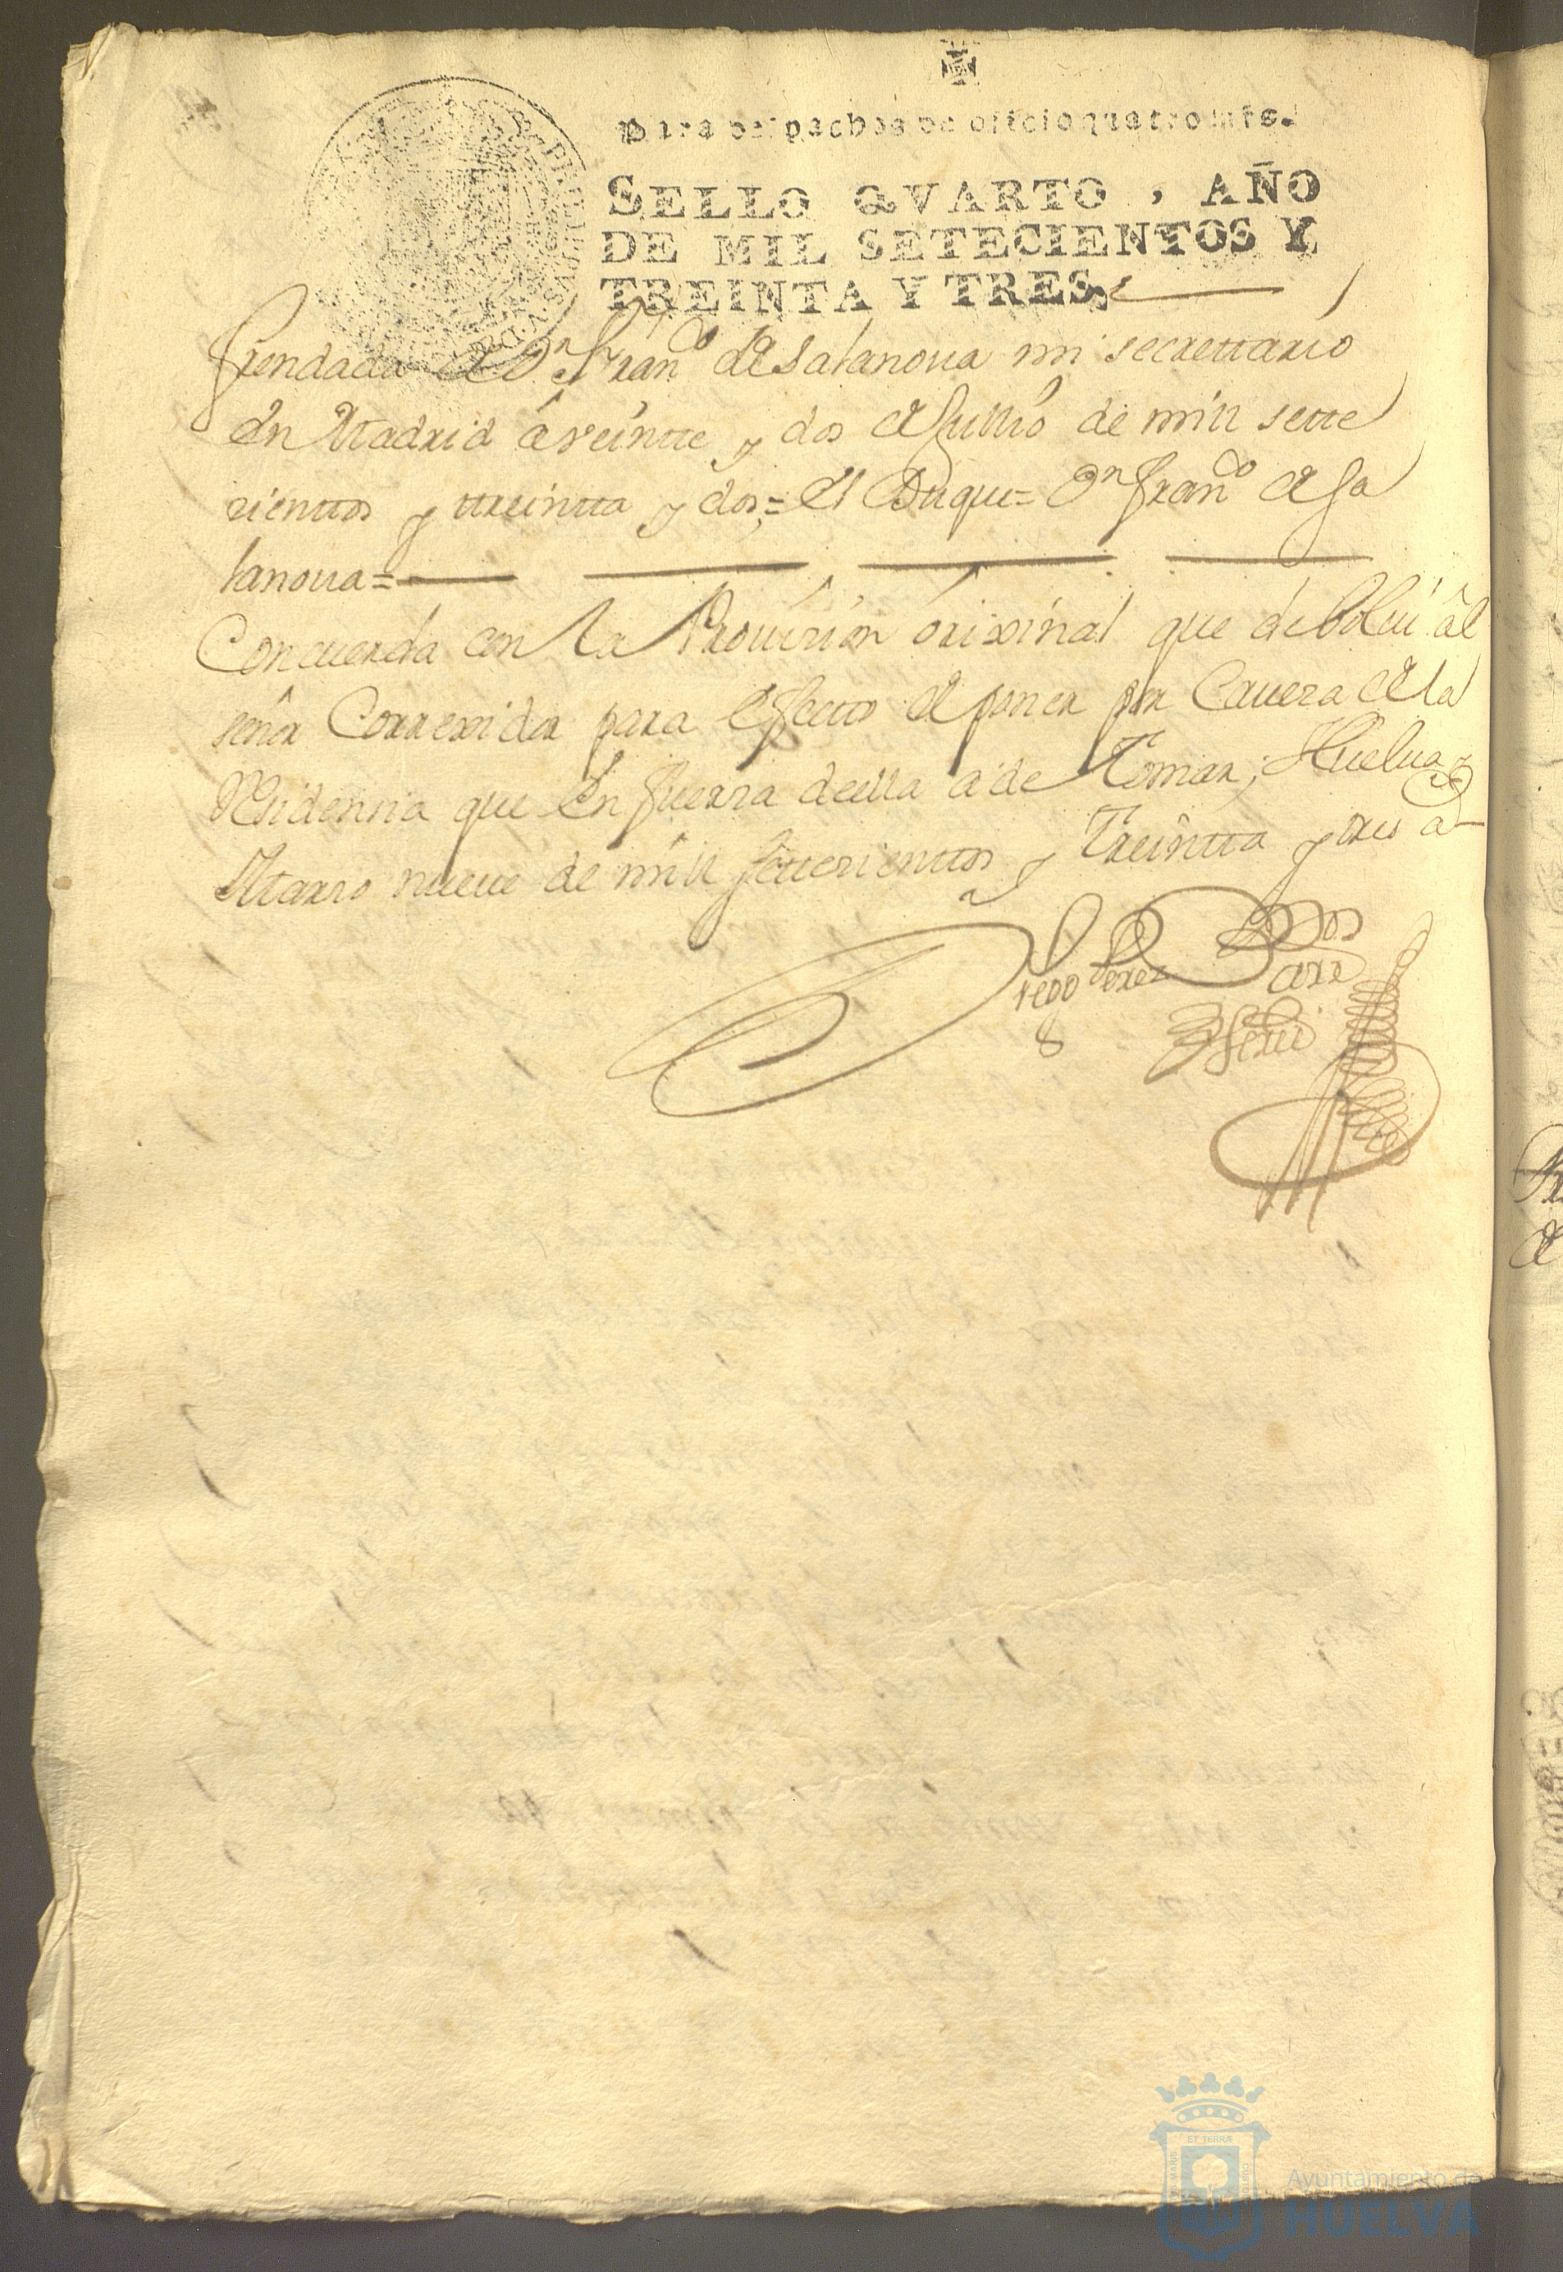 Para despachos de oficio quatro mrs.
SELLO QVARTO, AÑO
DE MIL SETECIENTOS Y
TREINTA Y TRES
frendada de Dn Frano de Salanoua mi secrettario
En Madrid â veintte y dos de Jullio de mill sette
cienttos y ttreintta y dos = El Duque = Dn Frano de Sa
lanoua =
Concuerda con la Prouision orixinal que debolui âl
señor Correxidor para efectto de poner por Cauera de la
Residencia que en fuerza de ella a de Tomar; Huelua y
Marzo nueue de mill settecienttos y Treintta y tres as
Diego Perez